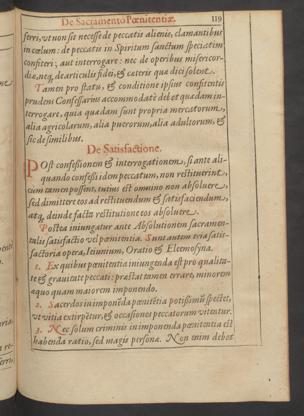 De Sacramento Pœnitentiæ. 119
ferri, vt non sit necesse de peccatis alienis, clamantibus
in cœlum: de peccatis in Spiritum sanctum speciatim
confiteri; aut interrogare: nec de operibus misericor-
diæ, neq, de articulis fidei, & cæteris qua dici solent.
Tamen pro statu, & conditione ipsius confitentis
prudens Confessarius accommodatè debet quædam in-
terrogare, quia quædam sunt propria mercatorum,
alia agricolarum, alia puerorum, alia adultorum, &
sic de similibus.
De Satisfactione.
POst confessionem & interrogationem, si ante ali-
quando confessi idem peccatum, non restituerint,
cum tamen possent, tutius est omnino non absoluere,
sed dimittere eos ad restituendum & satisfaciendum,
atq, deinde facta restitutione eos absoluere.
Postea iniungatur ante Absolutionem sacramen-
talis satisfactio vel pœnitentia. Sunt autem tria satis-
factoria opera, Ieiunium, Oratio & Eleemosyna.
1. Ex quibus pœnitentia iniungenda est pro qualita-
te & grauitate peccati: præstat tamen errare, minorem
æquo quam maiorem imponendo.
2. Sacerdos in imponēda pœnitētia potissimū spectet,
vt vitia extirpētur, & occasiones peccatorum vitentur.
3. Nec solum criminis in imponenda pœnitentia est
habenda ratio, sed magis personæ. Non enim debet